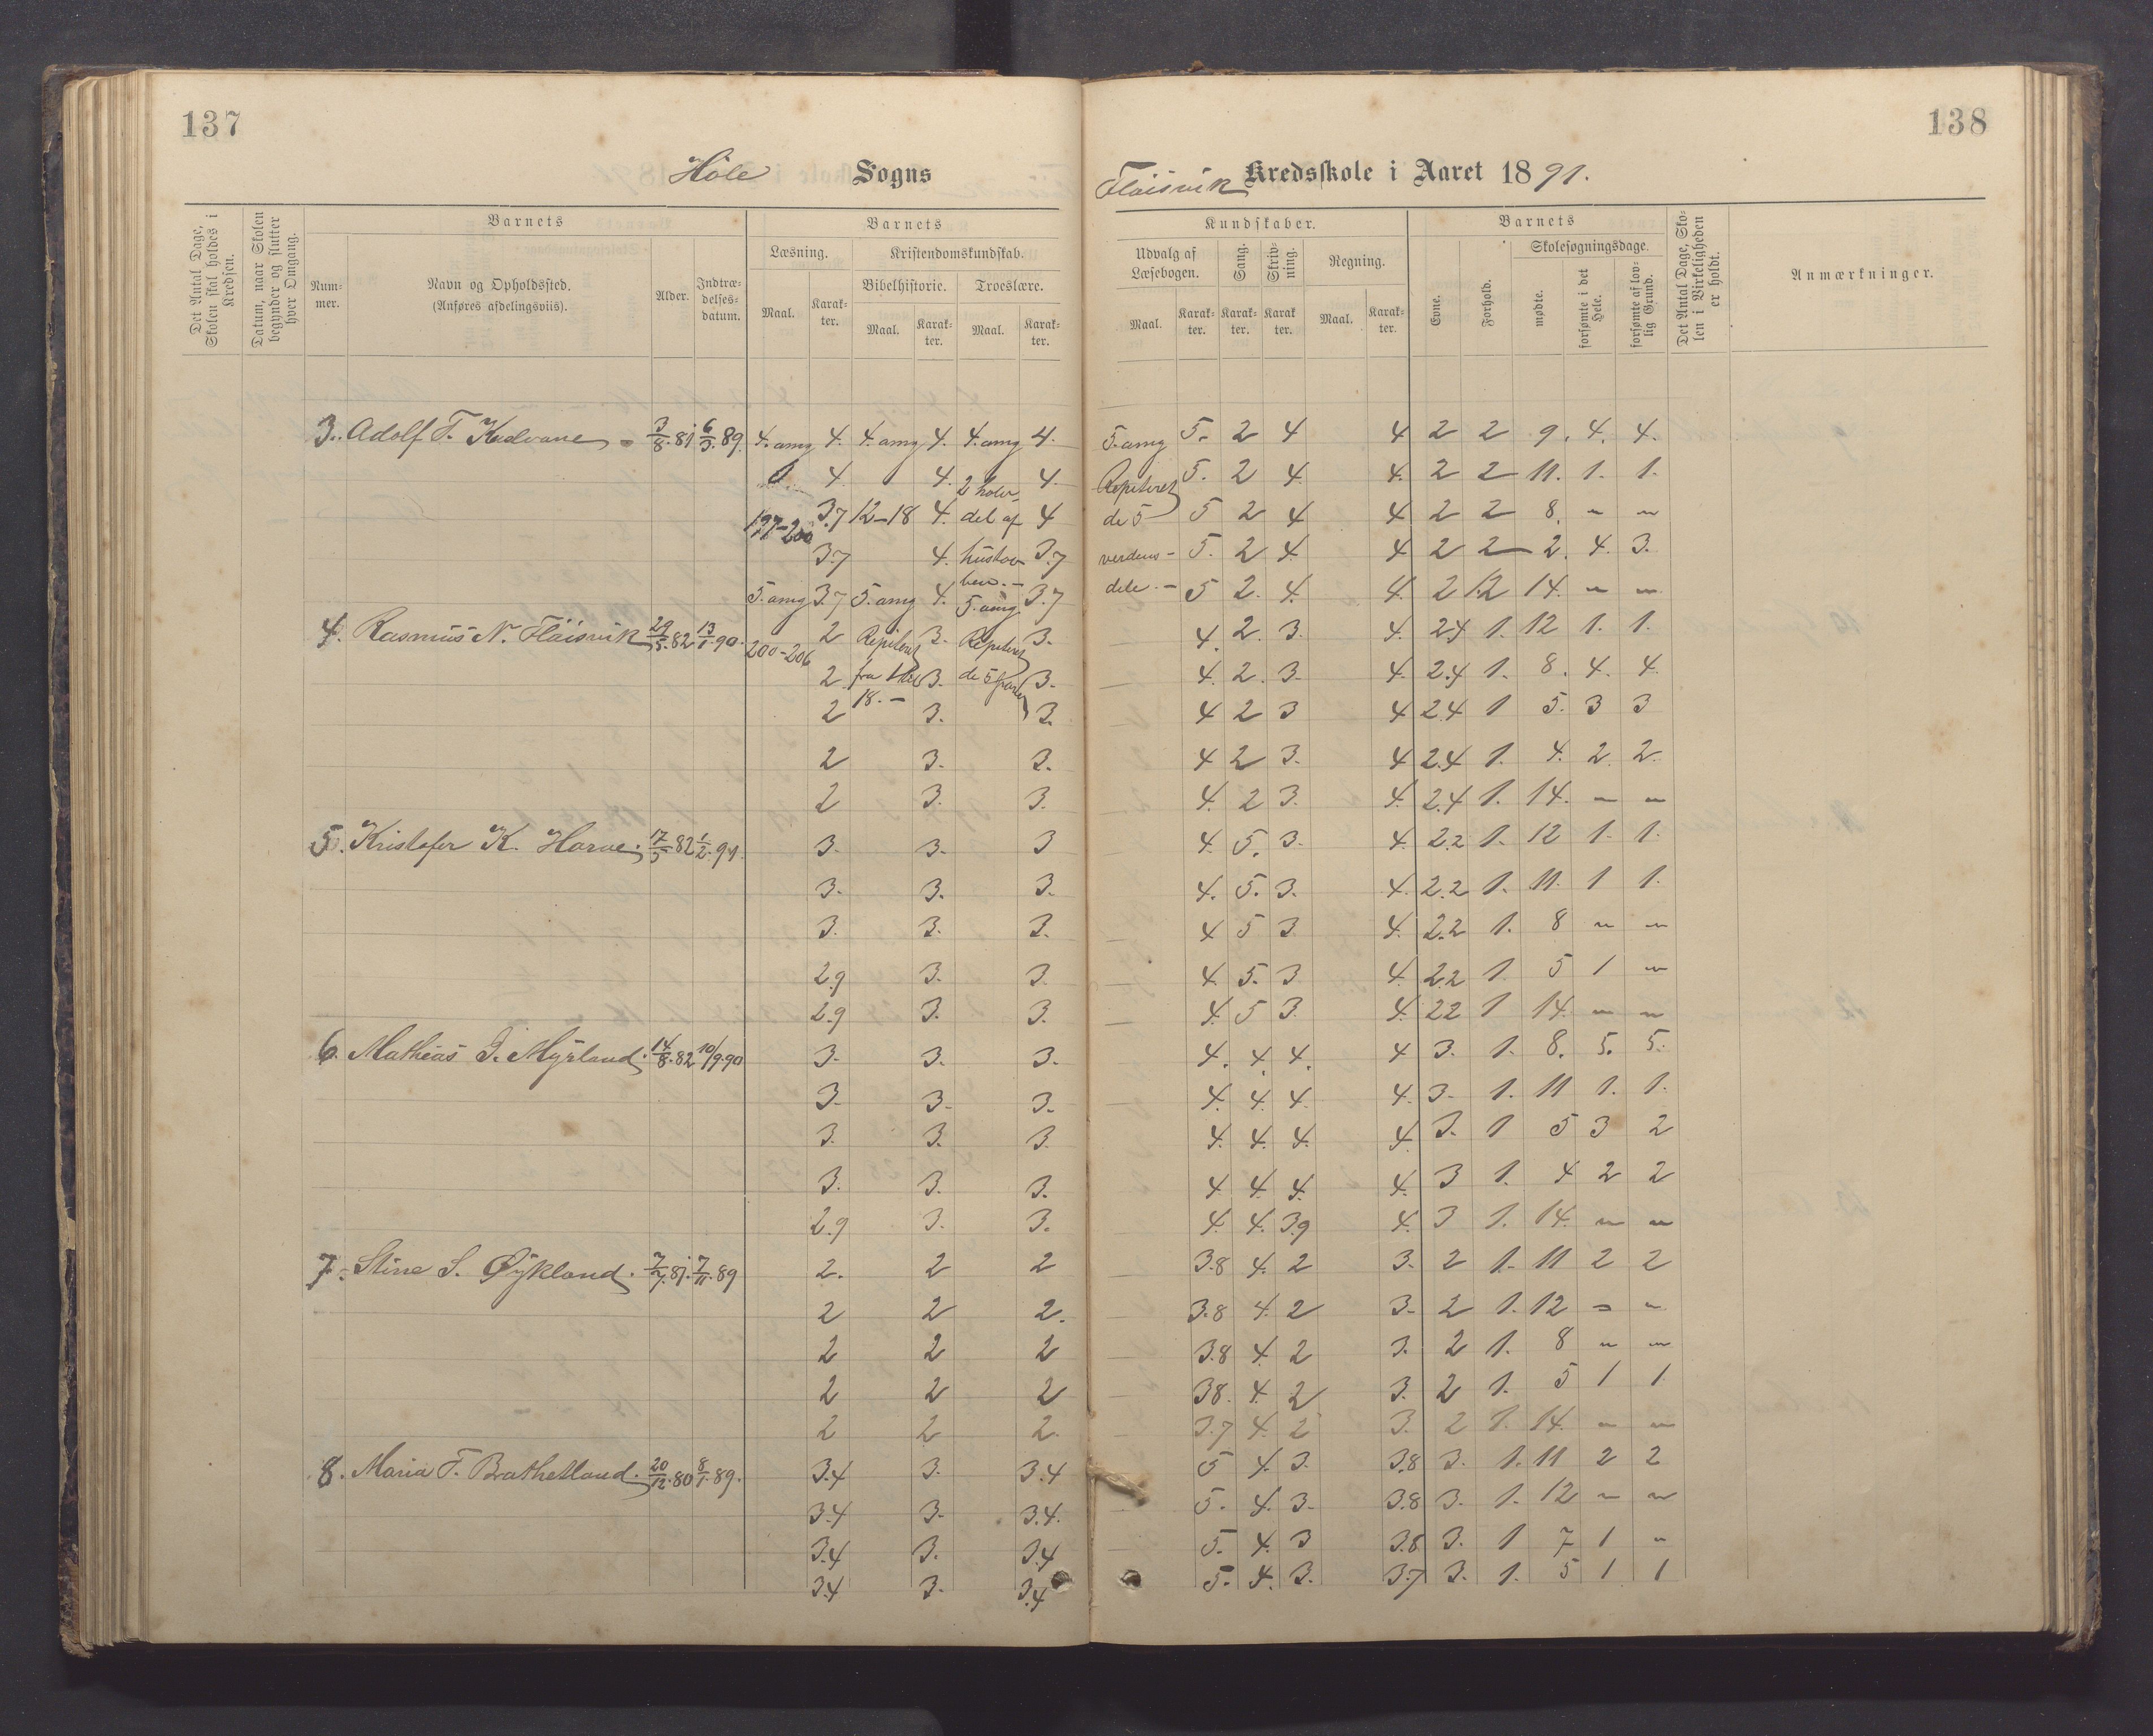 137
138
Höle Sogns
Flöisvik Kredsskole i Aaret 1891.
Det Antal Dage, Skolen skal holdes i Kredsen.
Datum, naar Skolen begynder og slutter hver Omgang.
Barnets
Num-mer.
Navn og Opholdssted.
(Anføres afdelingsviis).
Alder.
Indtræ-delses-datum.
Barnets
Læsning.
Kristendomskundskab.
Bibelhistorie. Troeslære.
Maal. Karak-ter. Maal. Karak-ter. Maal. Karak-ter.
Kundskaber.
Udvalg af Læsebogen.
Sang.
Skriv-ning.
Regning.
Maal. Karak-ter. Karak-ter. Karak-ter. Maal. Karak-ter.
Barnets
Evne.
Forhold.
Skolesøgningsdage.
mødte.
forsømte i det Hele.
forsømte af lov-lig Grund.
Det Antal Dage, Sko-len i Virkeligheden er holdt.
Anmærkninger.
3. Adolf T. 3/8.81 6/3.89 4. omg 4. 4. omg 4. 4. omg 4. 5. omg 5. 2 4 4 2 2 9. 4. 4.
4. 4. 4. Repiteret 5. 2 4. 4. 2 2 11. 1. 1.
197-200 3.7 12-18 4. del af 4 de 5 5 2 4 4 2 2 8. " "
3.7 4. 3.7 verdens- 5. 2 4. 4 2 2 2. 4. 3.
5. omg 3.7 5. omg 4. 5. omg. 3.7 dele.- 5 2. 4. 4. 2 1.2 14. " "
4. Rasmus N. Flöisvik 29/5.82 13/1.90. 200-206 2 Repiteret 3. Repiteret 3. 4. 2. 3. 4. 2.4 1. 12 1. 1.
2. fra 3. de 5 parter 3. 4. 2. 3. 4. 2.4 1. 8. 4. 4.
2 18.- 3. 3. 4 2 3 4 2.4 1 5. 3 3
2 3. 3. 4 2 3. 4 2.4 1. 4. 2. 2.
2 3. 3. 4. 2 3. 4. 2.4 1. 14. " "
5. Kristofer K. Horve. 17/5.82 1/2.91. 3. 3. 3 4. 5. 3. 4. 2.2 1. 12 1. 1.
3. 3. 3. 4. 5. 3. 4. 2.2 1. 11. 1 1.
3. 3. 3. 4 5 3 4. 2.2 1. 8 " "
2.9 3. 3. 4. 5. 3 4. 2.2 1. 5 1 "
2.9 3. 3. 4. 5 3. 4. 2.2 1 14. " "
6. Mathias I. Myrland. 14/8.82 10/9.90 3. 3. 3. 4. 4. 4. 4 3. 1. 8. 5. 5.
3. 3. 3. 4. 4. 4. 4. 3. 1. 11 1. 1.
3. 3. 3. 4. 4. 4. 4. 3. 1 5 3 2
3. 3. 3. 4 4. 4. 4. 3 1. 4 2 2
2.9 3. 3. 4. 4. 3.9 4. 3 1. 14. " "
7. Stine S. Øykland. 7/7.81. 7/11.89 2. 2 2 3.8 4. 2 3. 2 1. 11 2 2
2 2 2. 3.8 4. 2 3. 2 1. 12 " "
2 2 2 3.8 4. 2 3. 2 1. 8 " "
2 2 2 3.8. 4. 2 3. 2 1. 5 1 1
2 2 2. 3.7 4. 2 3. 2 1. 14. " "
8. Maria T. Brathetland. 20/12.80 8/1.89. 3.4 3. 3.4 5 4. 3. 3.8 3. 1. 11 2 2
3.4 3. 3.4. 5. 4. 3. 3.8 3. 1. 12 " "
3.4 3. 3.4 5. 4. 3 3.8 3. 1 7 1 "
3.4 3. 3.4 5. 4. 3. 3.7 3. 1. 5 1 1